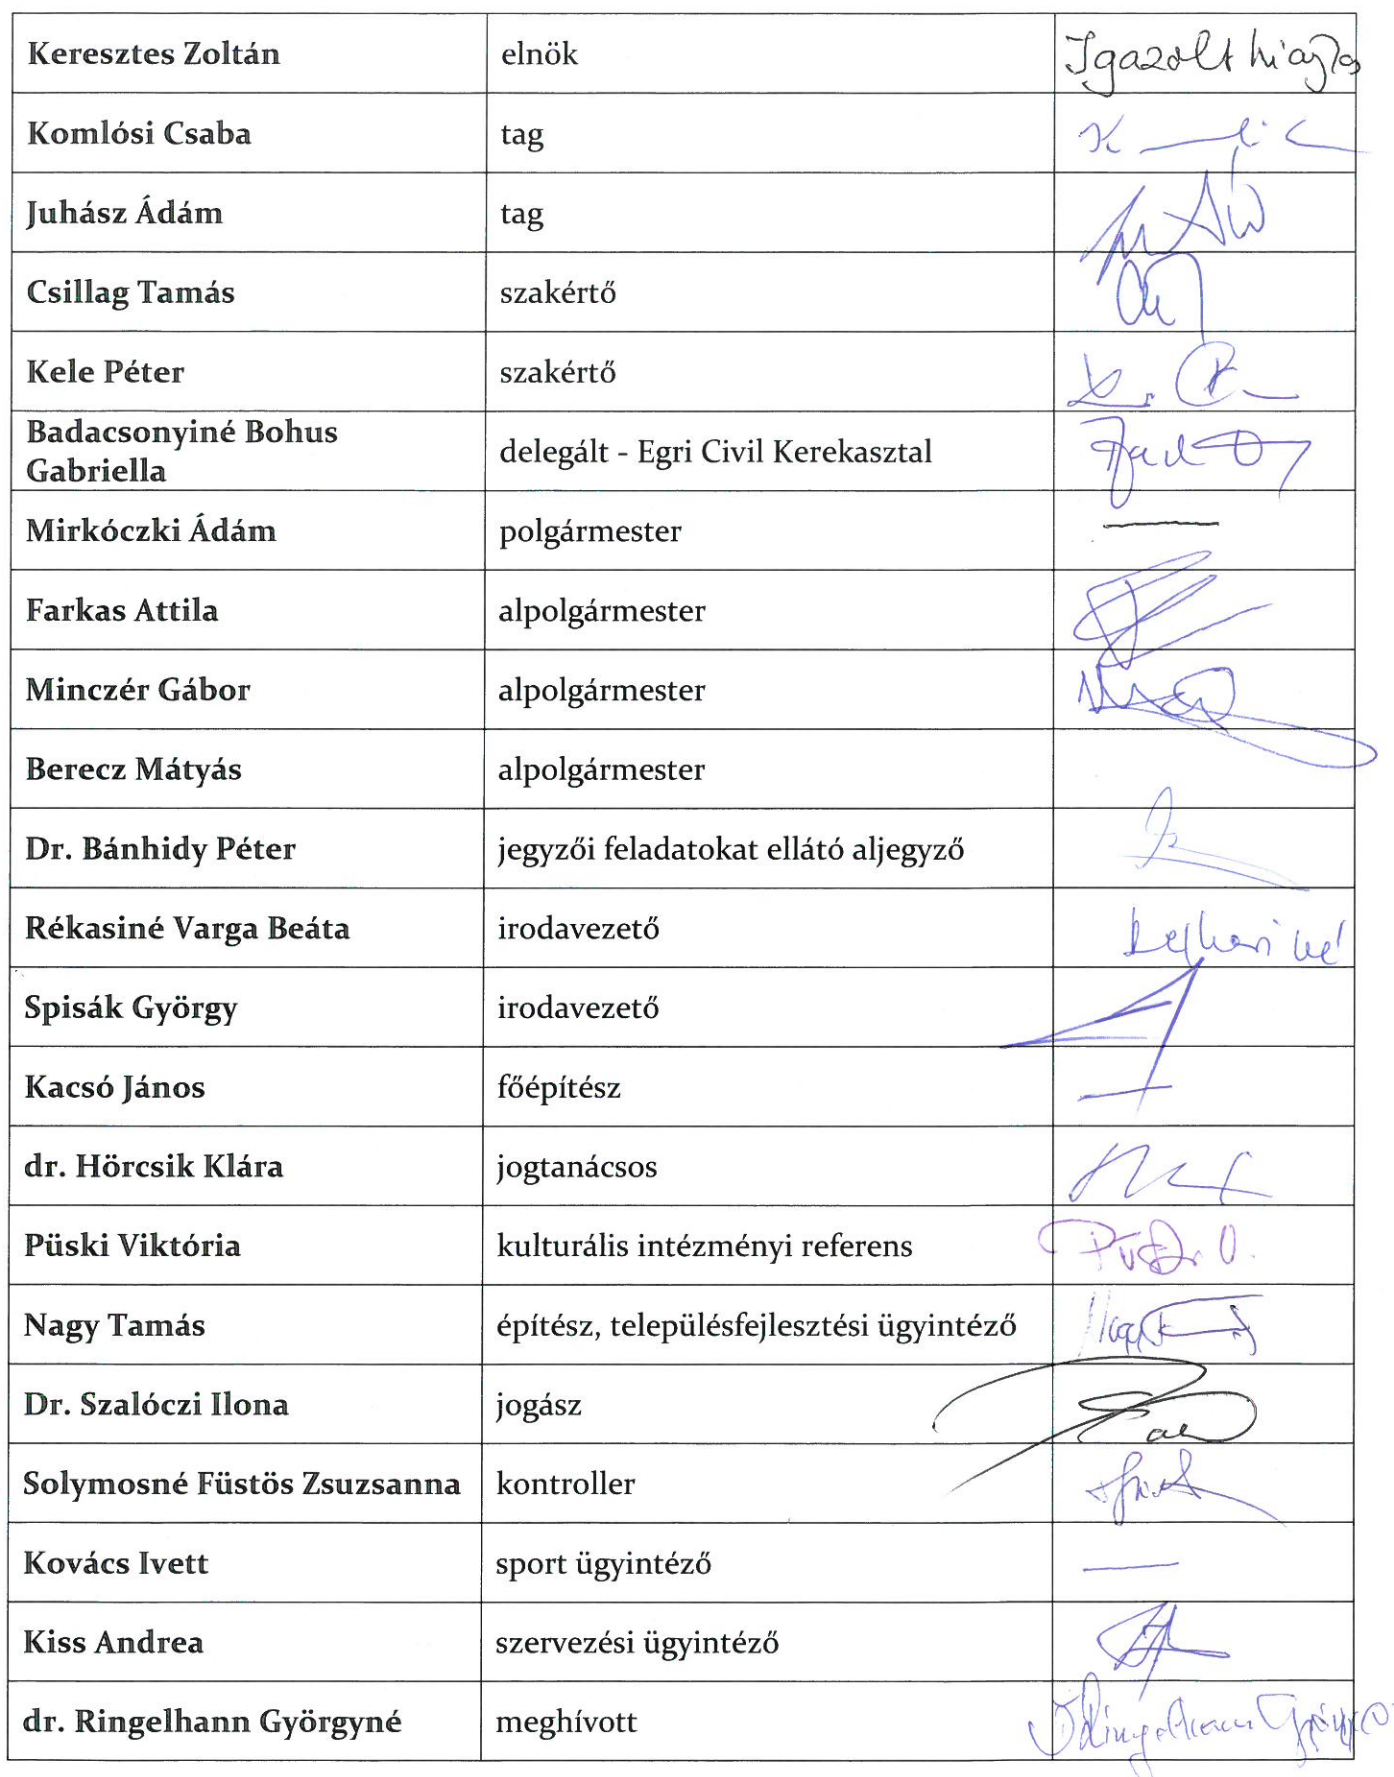 Keresztes Zoltán elnök Igazolt hiányzó
Komlósi Csaba tag
Juhász Ádám tag
Csillag Tamás szakértő
Kele Péter szakértő
Badacsonyiné Bohus
Gabriella delegált - Egri Civil Kerekasztal
Mirkóczki Ádám polgármester
Farkas Attila alpolgármester
Minczér Gábor alpolgármester
Berecz Mátyás alpolgármester
Dr. Bánhidy Péter jegyzői feladatokat ellátó aljegyző
Rékasiné Varga Beáta irodavezető
Spisák György irodavezető
Kacsó János főépítész
dr. Hörcsik Klára jogtanácsos
Püski Viktória kulturális intézményi referens
Nagy Tamás építész, településfejlesztési ügyintéző
Dr. Szalóczi Ilona jogász
Solymosné Füstös Zsuzsanna kontroller
Kovács Ivett sport ügyintéző
Kiss Andrea szervezési ügyintéző
dr. Ringelhann Györgyné meghívott